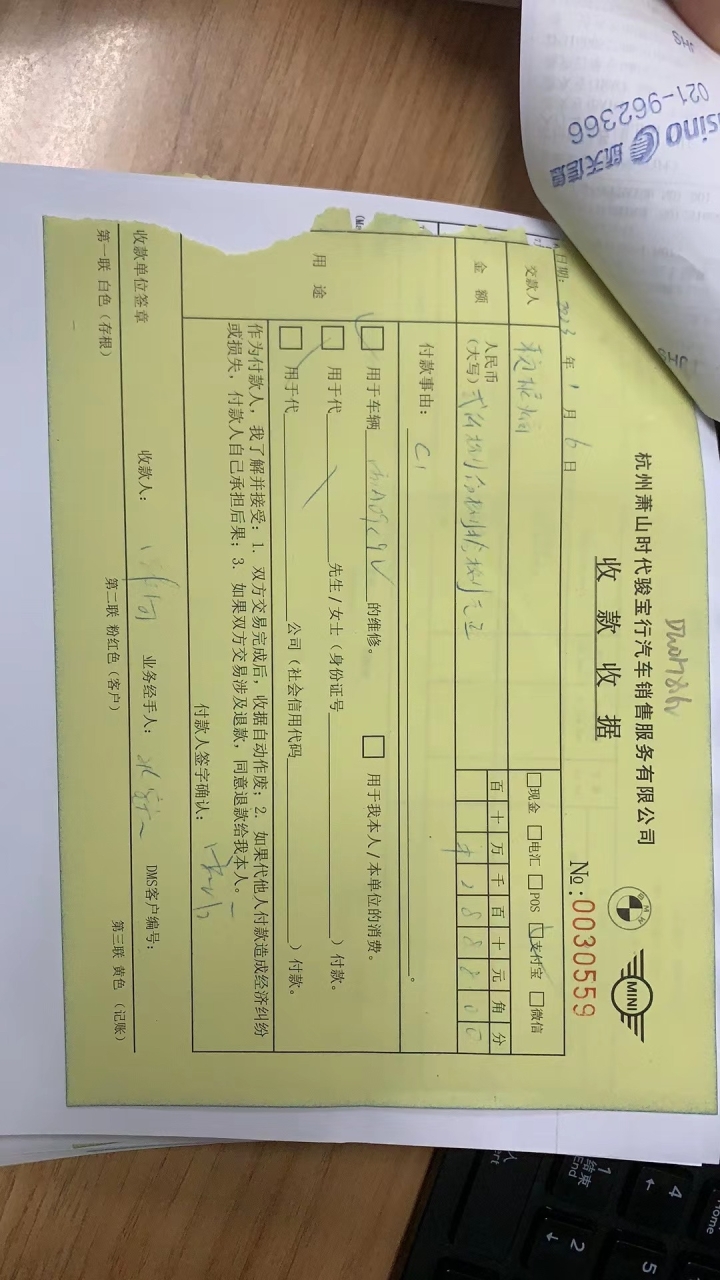 杭州萧山时代骏宝行汽车销售服务有限公司
收款收据
MINI
№:0030559
日期: 2023 年 1 月 6 日
交款人
□现金 □电汇 □POS □支付宝 □微信
金额
人民币
(大写)
百 十 万 千 百 十 元 角 分
¥ 2 8 8 8 0 0
付款事由: C1 。
用途
□ 用于车辆 的维修。 □ 用于我本人/本单位的消费。
□ 用于代 先生/女士(身份证号 )付款。
□ 用于代 公司(社会信用代码 )付款。
作为付款人,我了解并接受:1. 双方交易完成后,收据自动作废;2. 如果代他人付款造成经济纠纷
或损失,付款人自己承担后果;3. 如果双方交易涉及退款,同意退款给我本人。
付款人签字确认:
收款单位签章 收款人: 业务经手人: DMS客户编号:
第一联 白色(存根) 第二联 粉红色(客户) 第三联 黄色(记账)
021-962366